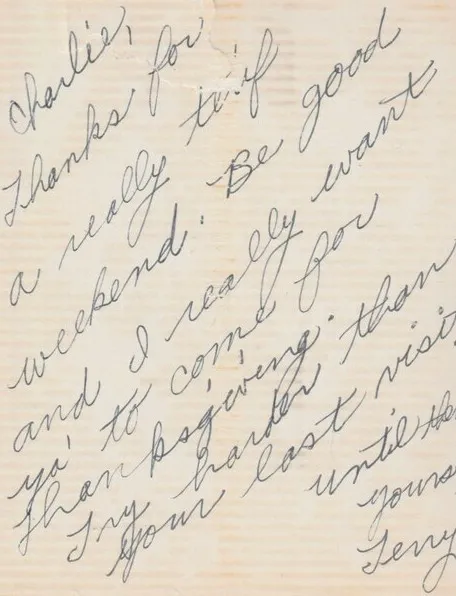 Charlie,
Thanks for
a really terif
weekend. Be good
and I really want
ya' to come for
Thanksgiving.
Try harder than
your last visit
until the
yours
Terry